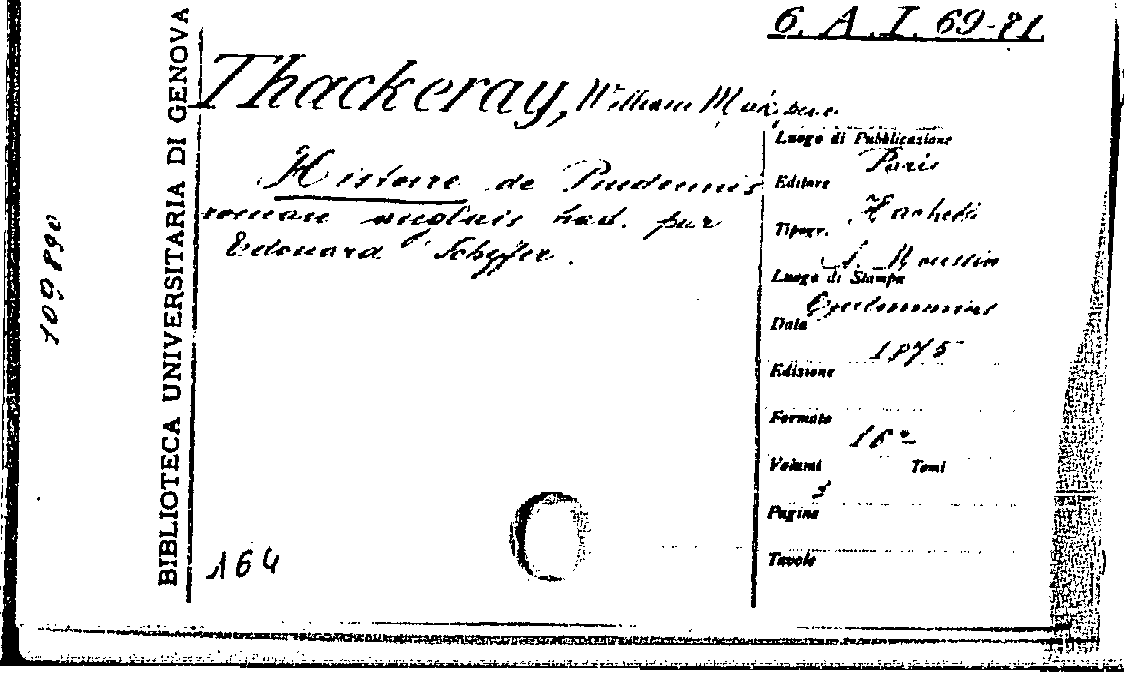 6. A. I. 69-81
BIBLIOTECA UNIVERSITARIA DI GENOVA
109890
Thackeray, William
Histoire de Pendennis
roman anglais trad. par
Edouard Scheffer.
Luogo di Pubblicazione
Paris
Editore
Hachette
Tipogr.
Luogo di Stampa
Data
1875
Edizione
Formato
16°
Volumi Tomi
3
Pagine
Tavole
164